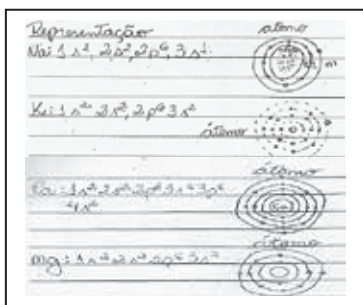 Representação
átomo
Na: 1s², 2s², 2p⁶, 3s¹.
1s² 2s² 2p⁶ 3s²
átomo
átomo
Ca: 1s² 2s² 2p⁶ 3s² 3p⁶
4s²
átomo
mg: 1s² 2s² 2p⁶ 3s²